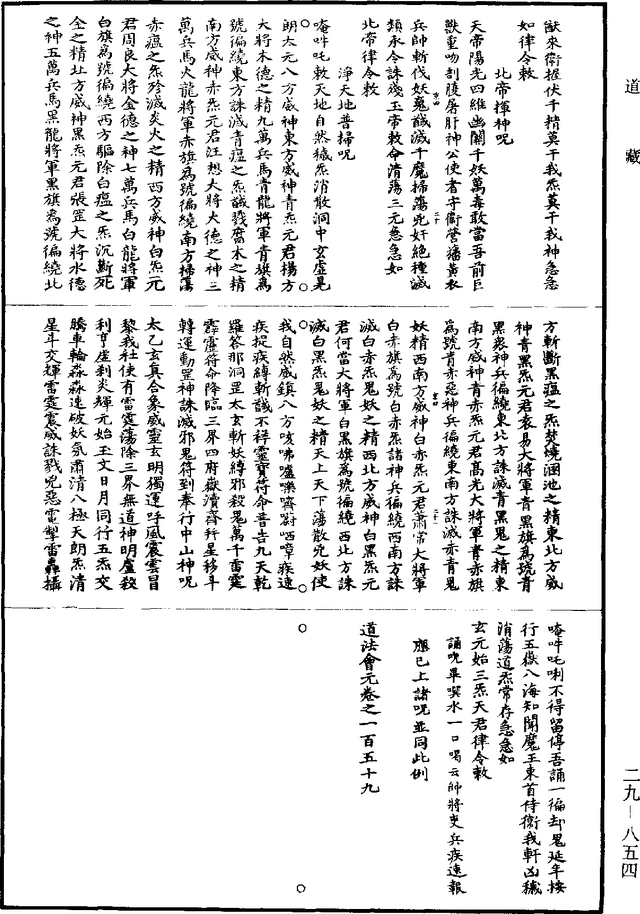 道藏
獸來衛握伏千精莫干我炁莫干我神急急
如律令敕
北帝揮神呪
天帝陽光四維幽閣千妖萬毒敢當吾前巨
獸重吻刳腹屠肝神公使者守衛營藩黃衣
兵帥斬伐妖䰠馘滅千魔掃蕩兇奸絕種滅
類永令誅殘玉帝敕命清蕩三元急急如
北帝律令敕
淨天地普掃呪
唵吽吒敕天地自然穢炁消散洞中玄虛晃
朗太元八方威神東方威神青炁元君楊方
大將木德之精九萬兵馬青龍將軍青旗為
號徧繞東方誅滅青瘟之炁馘戮腐木之精
南方威神赤炁元君汪想大將火德之神三
萬兵馬火龍將軍赤旗為號徧繞南方掃蕩
赤瘟之炁殄滅炎火之精西方威神白炁元
君周良大將金德之神七萬兵馬白龍將軍
白旗為號徧繞西方驅除白瘟之炁沉斷死
金之精北方威神黑炁元君張罡大將水德
之神五萬兵馬黑龍將軍黑旗為號徧繞北
方斬斷黑瘟之炁焚燒溷池之精東北方威
神青黑炁元君袁易大將軍青黑旗為號青
黑裳神兵徧繞東北方誅滅青黑鬼之精東
南方威神青赤炁元君高光大將軍青赤旗
為號青赤惡神兵徧繞東南方誅滅赤青鬼
妖精西南方威神白赤炁元君肅常大將軍
白赤旗為號白赤炁諸神兵徧繞西南方誅
滅白赤炁鬼妖之精西北方威神白黑炁元
君何當大將軍白黑旗為號徧繞西北方誅
滅白黑炁鬼妖之精天上天下蕩散兇妖使
我自然威鎮八方唆咈嚧嚛齋㗉呬㖓疾速
疾捉疾縛斬馘不得靈寶符命普告九天乾
羅答那洞罡太玄斬妖縛邪殺鬼萬千雷霆
霹靂符命降臨三界四府嶽瀆齊行星移斗
轉運動罡神誅滅邪鬼符到奉行中山神呪
太乙玄真合象威靈玄明獨運呼風震雲冒
黎我社使有雷霆蕩除三界無道神明盧殺
利亨虛剎炎輝元始玉文日月同行五炁交
騰車輪森森速破妖氛肅清八極天朗炁清
星斗交輝雷霆震威誅戮兇惡電掣雷轟攝
唵吽吒唎不得留停吾誦一徧却鬼延年按
行五嶽八海知聞魔王束首侍衛我軒凶穢
消蕩道炁常存急急如
玄元始三炁天君律令敕
誦呪畢噀水一口喝云帥將吏兵疾速報
應已上諸呪並同此例
道法會元卷之一百五十九
二九–八五四